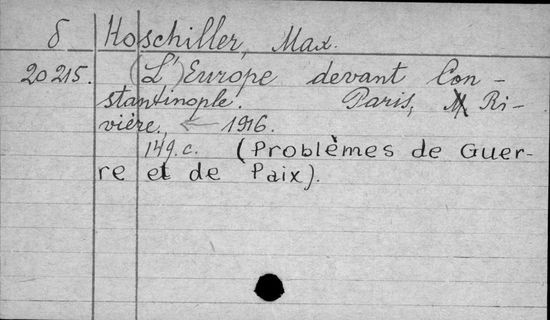 δ Hoschiller, Max.
20215. (L')Europe devant Con-
stantinople. Paris, M Ri-
vière, ← 1916.
149.c. (Problèmes de Guer-
re et de Paix).